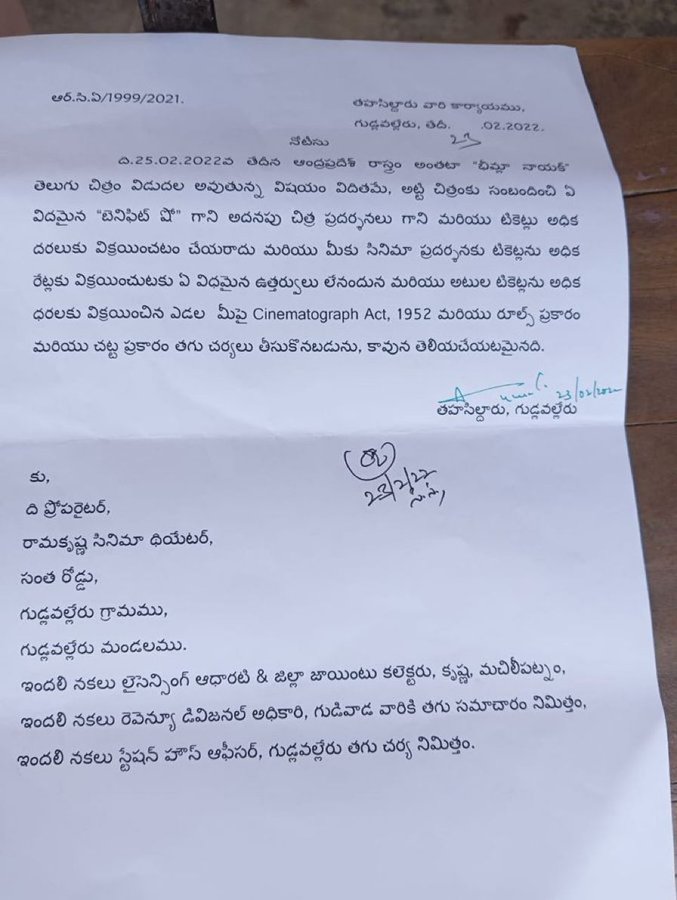 ఆర్.సి.ఏ/1999/2021.
తహసిల్దారు వారి కార్యాయము,
గుడ్లవల్లేరు, తెది. 23 .02.2022.
నోటీసు
ది.25.02.2022వ తెదిన ఆంద్రప్రదేశ్ రాస్త్రం అంతటా "భీమ్లా నాయక్"
తెలుగు చిత్రం విడుదల అవుతున్న విషయం విదితమే, అట్టి చిత్రంకు సంబందించి ఏ
విదమైన "బెనిఫిట్ షో" గాని అదనపు చిత్ర ప్రదర్శనలు గాని మరియు టికెట్లు అధిక
దరలుకు విక్రయించటం చేయరాదు మరియు మీకు సినిమా ప్రదర్శనకు టికెట్లను అధిక
రేట్లకు విక్రయించుటకు ఏ విధమైన ఉత్తర్వులు లేనందున మరియు అటుల టికెట్లను అధిక
ధరలకు విక్రయించిన ఎడల మీపై Cinematograph Act, 1952 మరియు రూల్స్ ప్రకారం
మరియు చట్ట ప్రకారం తగు చర్యలు తీసుకొనబడును, కావున తెలియచేయటమైనది.
23/02/2022
తహసిల్దారు, గుడ్లవల్లేరు
23/2/22
కు,
ది ప్రోపరైటర్,
రామకృష్ణ సినిమా థియేటర్,
సంత రోడ్డు,
గుడ్లవల్లేరు గ్రామము,
గుడ్లవల్లేరు మండలము.
ఇందలి నకలు లైసెన్సింగ్ ఆధారటి & జిల్లా జాయింటు కలెక్టరు, కృష్ణ, మచిలీపట్నం,
ఇందలి నకలు రెవెన్యూ డివిజనల్ అధికారి, గుడివాడ వారికి తగు సమాచారం నిమిత్తం,
ఇందలి నకలు స్టేషన్ హౌస్ ఆఫీసర్, గుడ్లవల్లేరు తగు చర్య నిమిత్తం.